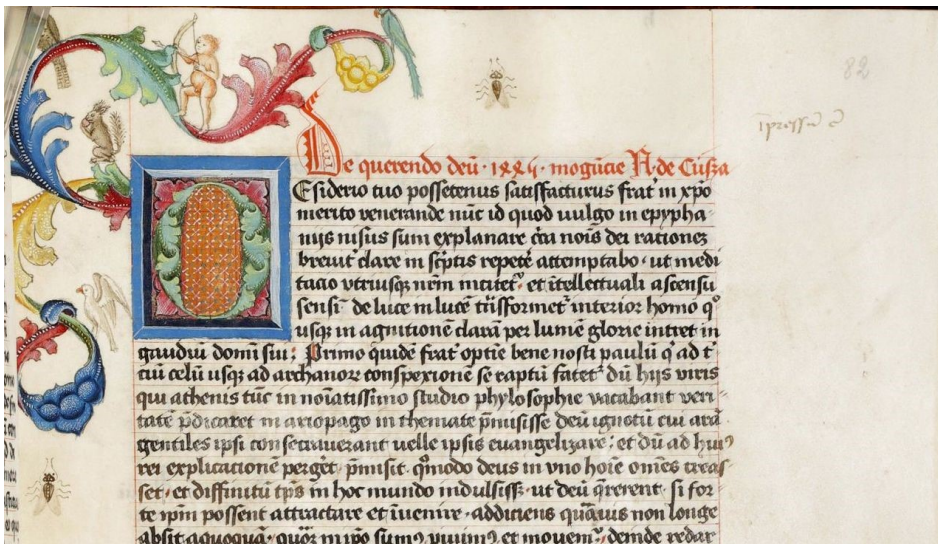 82
De querendo deū · 1445 · mogūcie N· de Cußa
Esiderio tuo possetenus satisfacturus frat̄ in xp̄o
merito venerande nūc id quod uulgo in epypha
nijs nisus sum explanare c̄ca nōis dei rationez
breuit̄ clare in sc̄ptis repete attemptabo · ut medi
tacio vtriusqꝫ nr̄m incitet᷑ · et ītellectuali ascensu
sensī de luce in lucē trāsformet᷑ interior homo qͦ
usqꝫ in agnitionē clarā per lumē glorie intret in
gaudiū domī sui ; Primo quidē frat̄ optīe bene nosti paulū q̄ ad t̄
ciū celū usqꝫ ad archanoꝝ conspexionē se raptū fatet᷑ dū hijs viris
qui athenis tūc in noīatissimo studio phylosophie vacabant veri
tatē p̄dicaret in ariopago in themate p̄misisse deū ignotū cui arā
gentiles ipsi consecrauerant uelle ipsis euangelizare ; et dū ad huiꝰ
rei explicationē perget̄ · p̄misit · qͦmodo deus in vno hoīe om̄es creas
set · et diffinitū tp̄s in hoc mundo indulsissꝫ · ut deū q̄rerent · si for
te ip̄m possent attractare et īuenire · addiciens quāuis non longe
absit aquoquā · quoꝝ in ip̄o sumꝰ viuimꝰ et mouemꝰ ; deinde redar